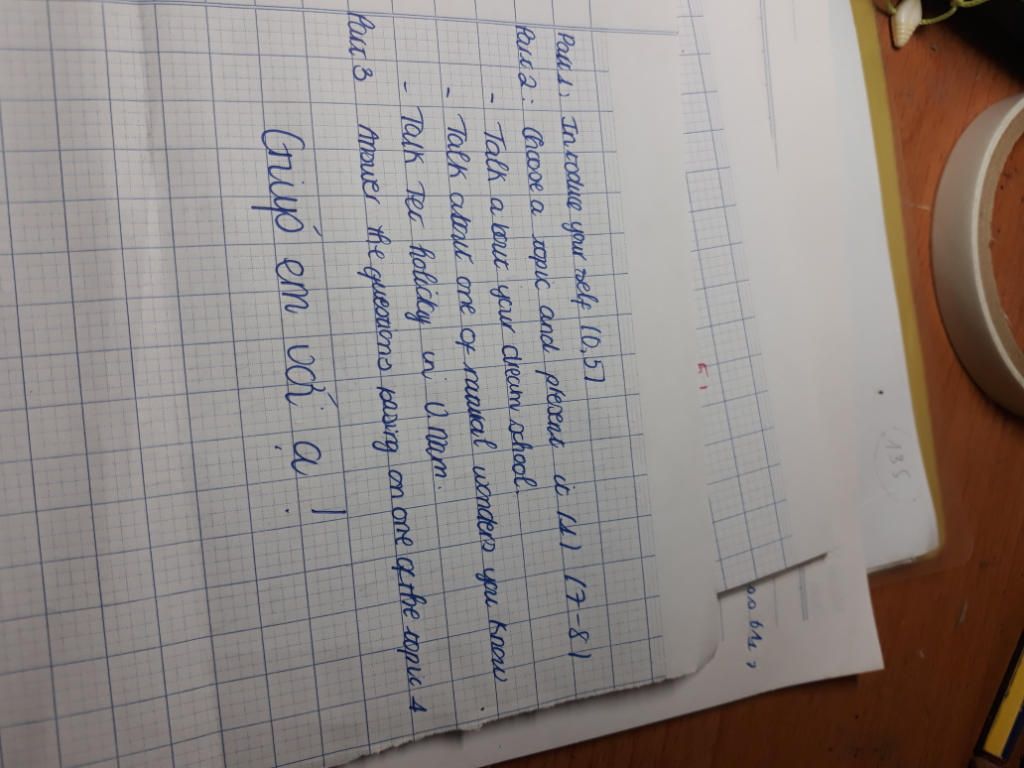 Part 1: Introduce your self (0,5)
Part 2: Choose a topic and present it (1.) (7-8)
- Talk about your dream school.
- Talk about one of natural wonders you know
- Talk Tet holiday in V.Nam.
Part 3 Answer the questions basing on one of the topic 1
Giúp em với ạ!
5,
135